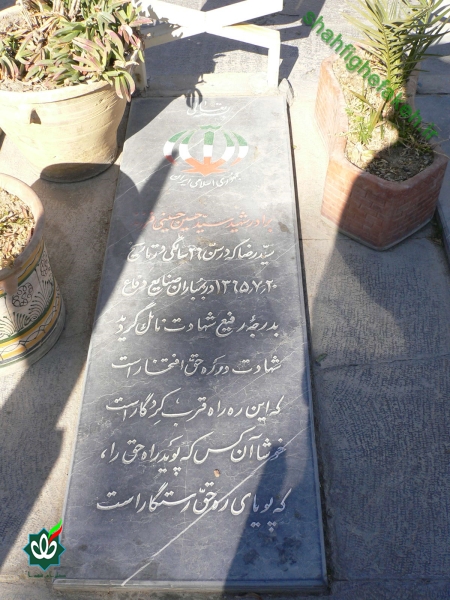 بسمه تعالی
جمهوری اسلامی ایران
برادر شهید سید حسین حسینی
سید رضا که در سن ۲۶ سالگی در تاریخ
۲۰،۷،۱۳۶۵ در بمباران صنایع دفاع
بدرجه رفیع شهادت نائل گردید
شهادت در ره حق افتخار است
که این ره راه قرب کردگار است
خوشا آن کس که پوید راه حق را،
که پویای ره حق رستگار است